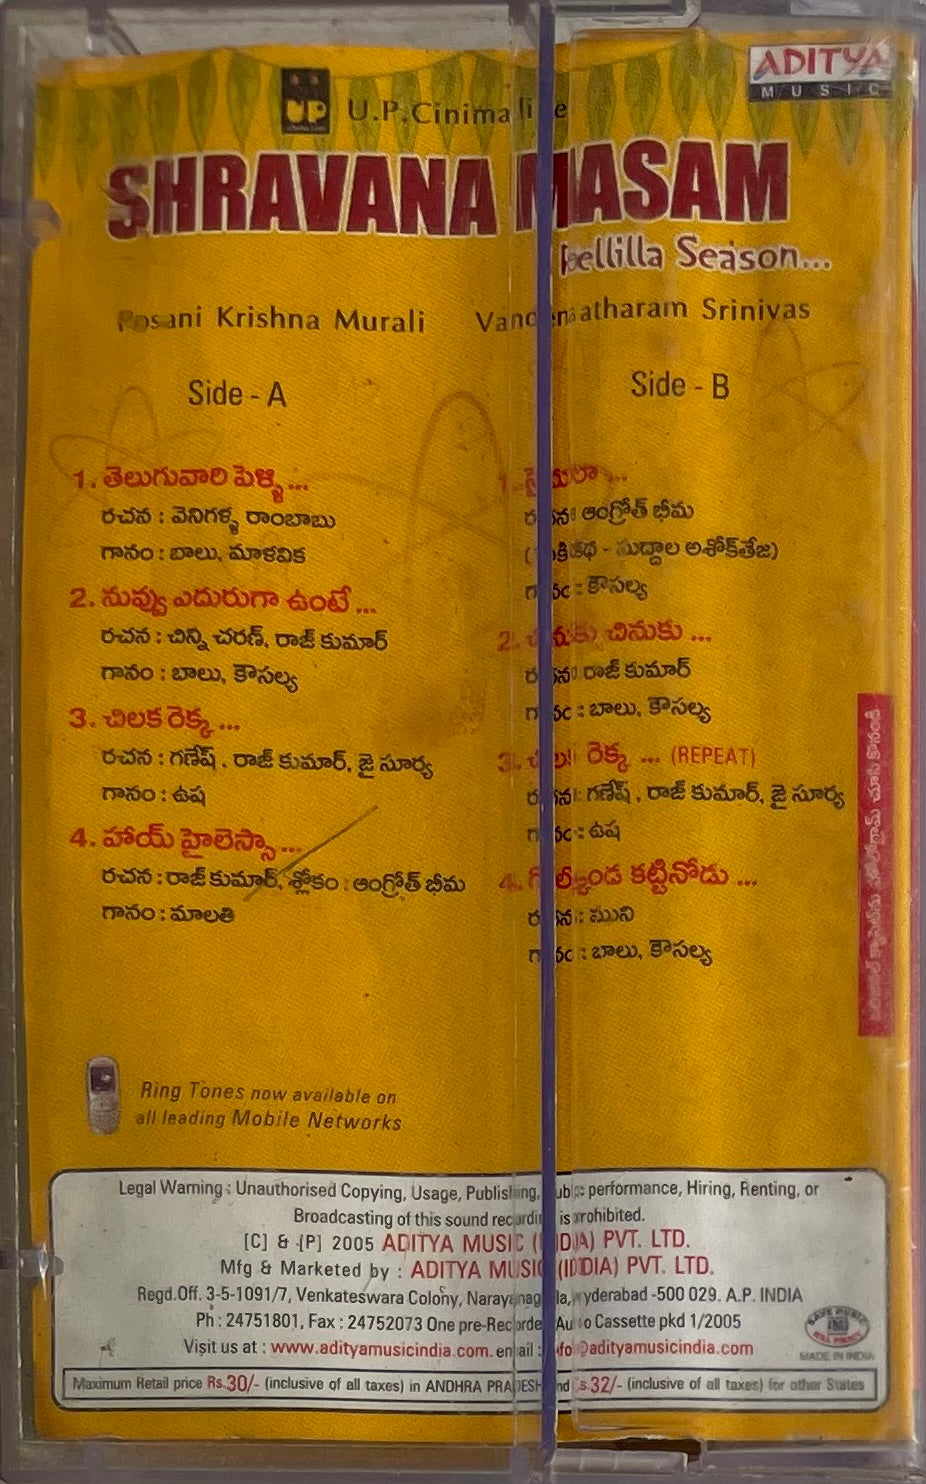 ADITYA
MUSIC
UP
U.P.Cinima
SHRAVANA MASAM
Pellilla Season...
Posani Krishna Murali
Vandemaatharam Srinivas
Side - A
1. తెలుగువారి పెళ్ళి...
రచన : వెనిగళ్ళ రాంబాబు
గానం : బాలు, మాళవిక
2. నువ్వు ఎదురుగా ఉంటే...
రచన : చిన్ని చరణ్, రాజ్ కుమార్
గానం : బాలు, కౌసల్య
3. చిలక రెక్క...
రచన : గణేష్, రాజ్ కుమార్, జై సూర్య
గానం : ఉష
4. హాయ్ హైలెస్సా...
రచన : రాజ్ కుమార్, శ్లోకం : ఆంగ్రోత్ భీమ
గానం : మాలతి
Side - B
1.
రచన: ఆంగ్రోత్ భీమ
- సుద్దాల అశోక్‌తేజ)
గానం : కౌసల్య
2. చినుకు చినుకు ...
రచన: రాజ్ కుమార్
గానం : బాలు, కౌసల్య
3. చిలక రెక్క ... (REPEAT)
రచన: గణేష్, రాజ్ కుమార్, జై సూర్య
గానం : ఉష
4. గోల్కొండ కట్టినోడు ...
రచన: ముని
గానం : బాలు, కౌసల్య
Ring Tones now available on
all leading Mobile Networks
Legal Warning : Unauthorised Copying, Usage, Publishing, Public performance, Hiring, Renting, or
Broadcasting of this sound recording is prohibited.
[C] & [P] 2005 ADITYA MUSIC (INDIA) PVT. LTD.
Mfg & Marketed by : ADITYA MUSIC (INDIA) PVT. LTD.
Regd.Off. 3-5-1091/7, Venkateswara Colony, Narayanaguda, Hyderabad -500 029. A.P. INDIA
Ph : 24751801, Fax : 24752073 One pre-Recorded Audio Cassette pkd 1/2005
Visit us at : www.adityamusicindia.com. email : info@adityamusicindia.com
SAVE MUSIC
KILL PIRACY
MADE IN INDIA
Maximum Retail price Rs.30/- (inclusive of all taxes) in ANDHRA PRADESH and Rs.32/- (inclusive of all taxes) for other States